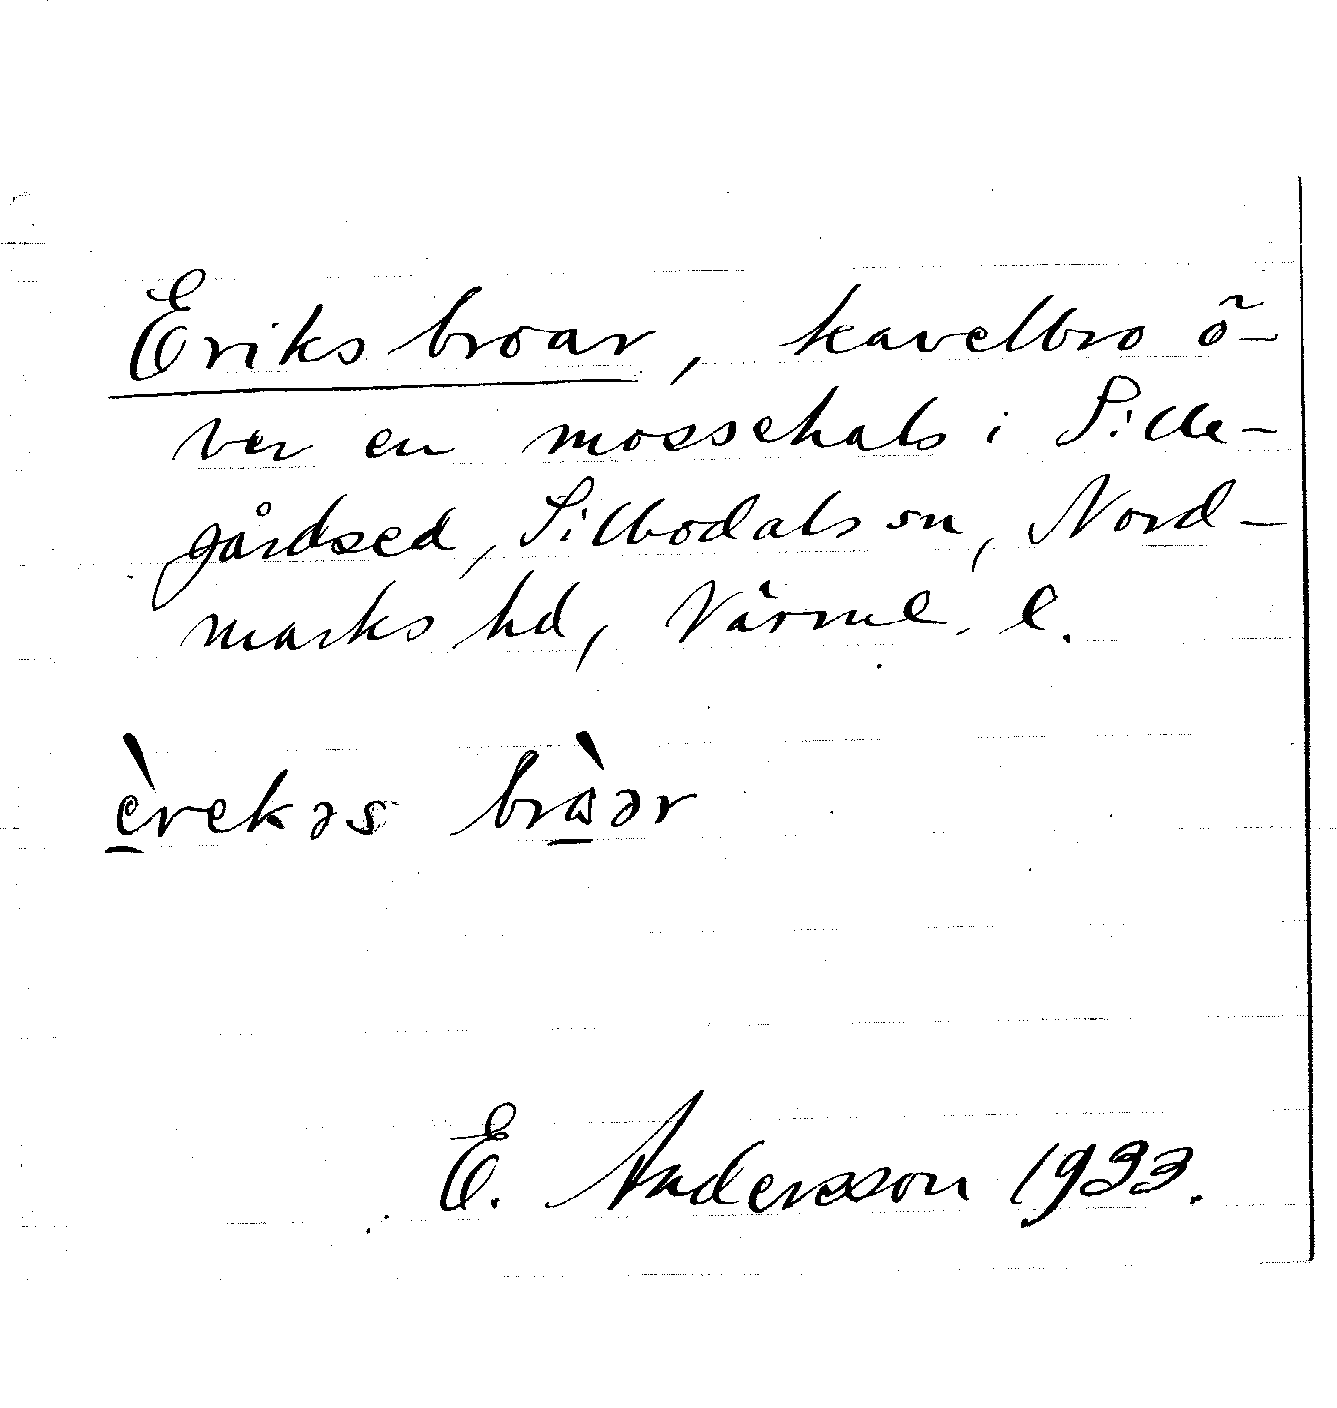 Eriks broar, kavelbro ö-
ver en mossehals i Sille-
gårdsed, Silbodals sn, Nord-
marks hd, Värml. l.
èrekəs bràər
E. Andersson 1933.